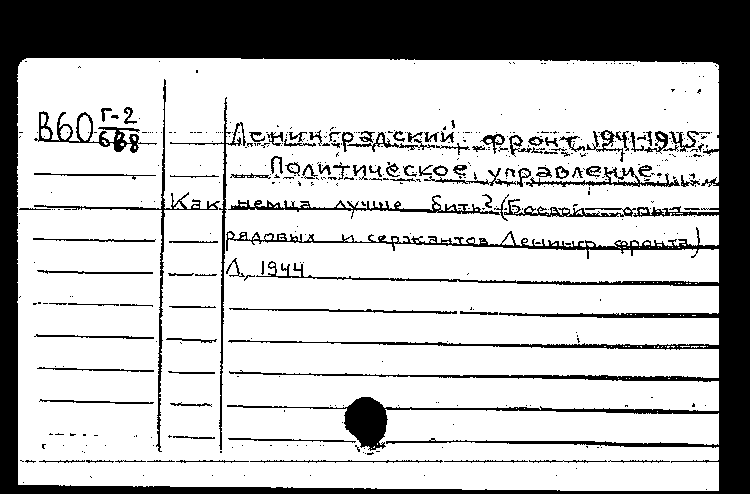 В60 Г-2
688
Ленинградский фронт, 1941-1945.
Политическое управление.
Как немца лучше бить? (Боевой опыт
рядовых и сержантов Ленингр. фронта)
Л., 1944.